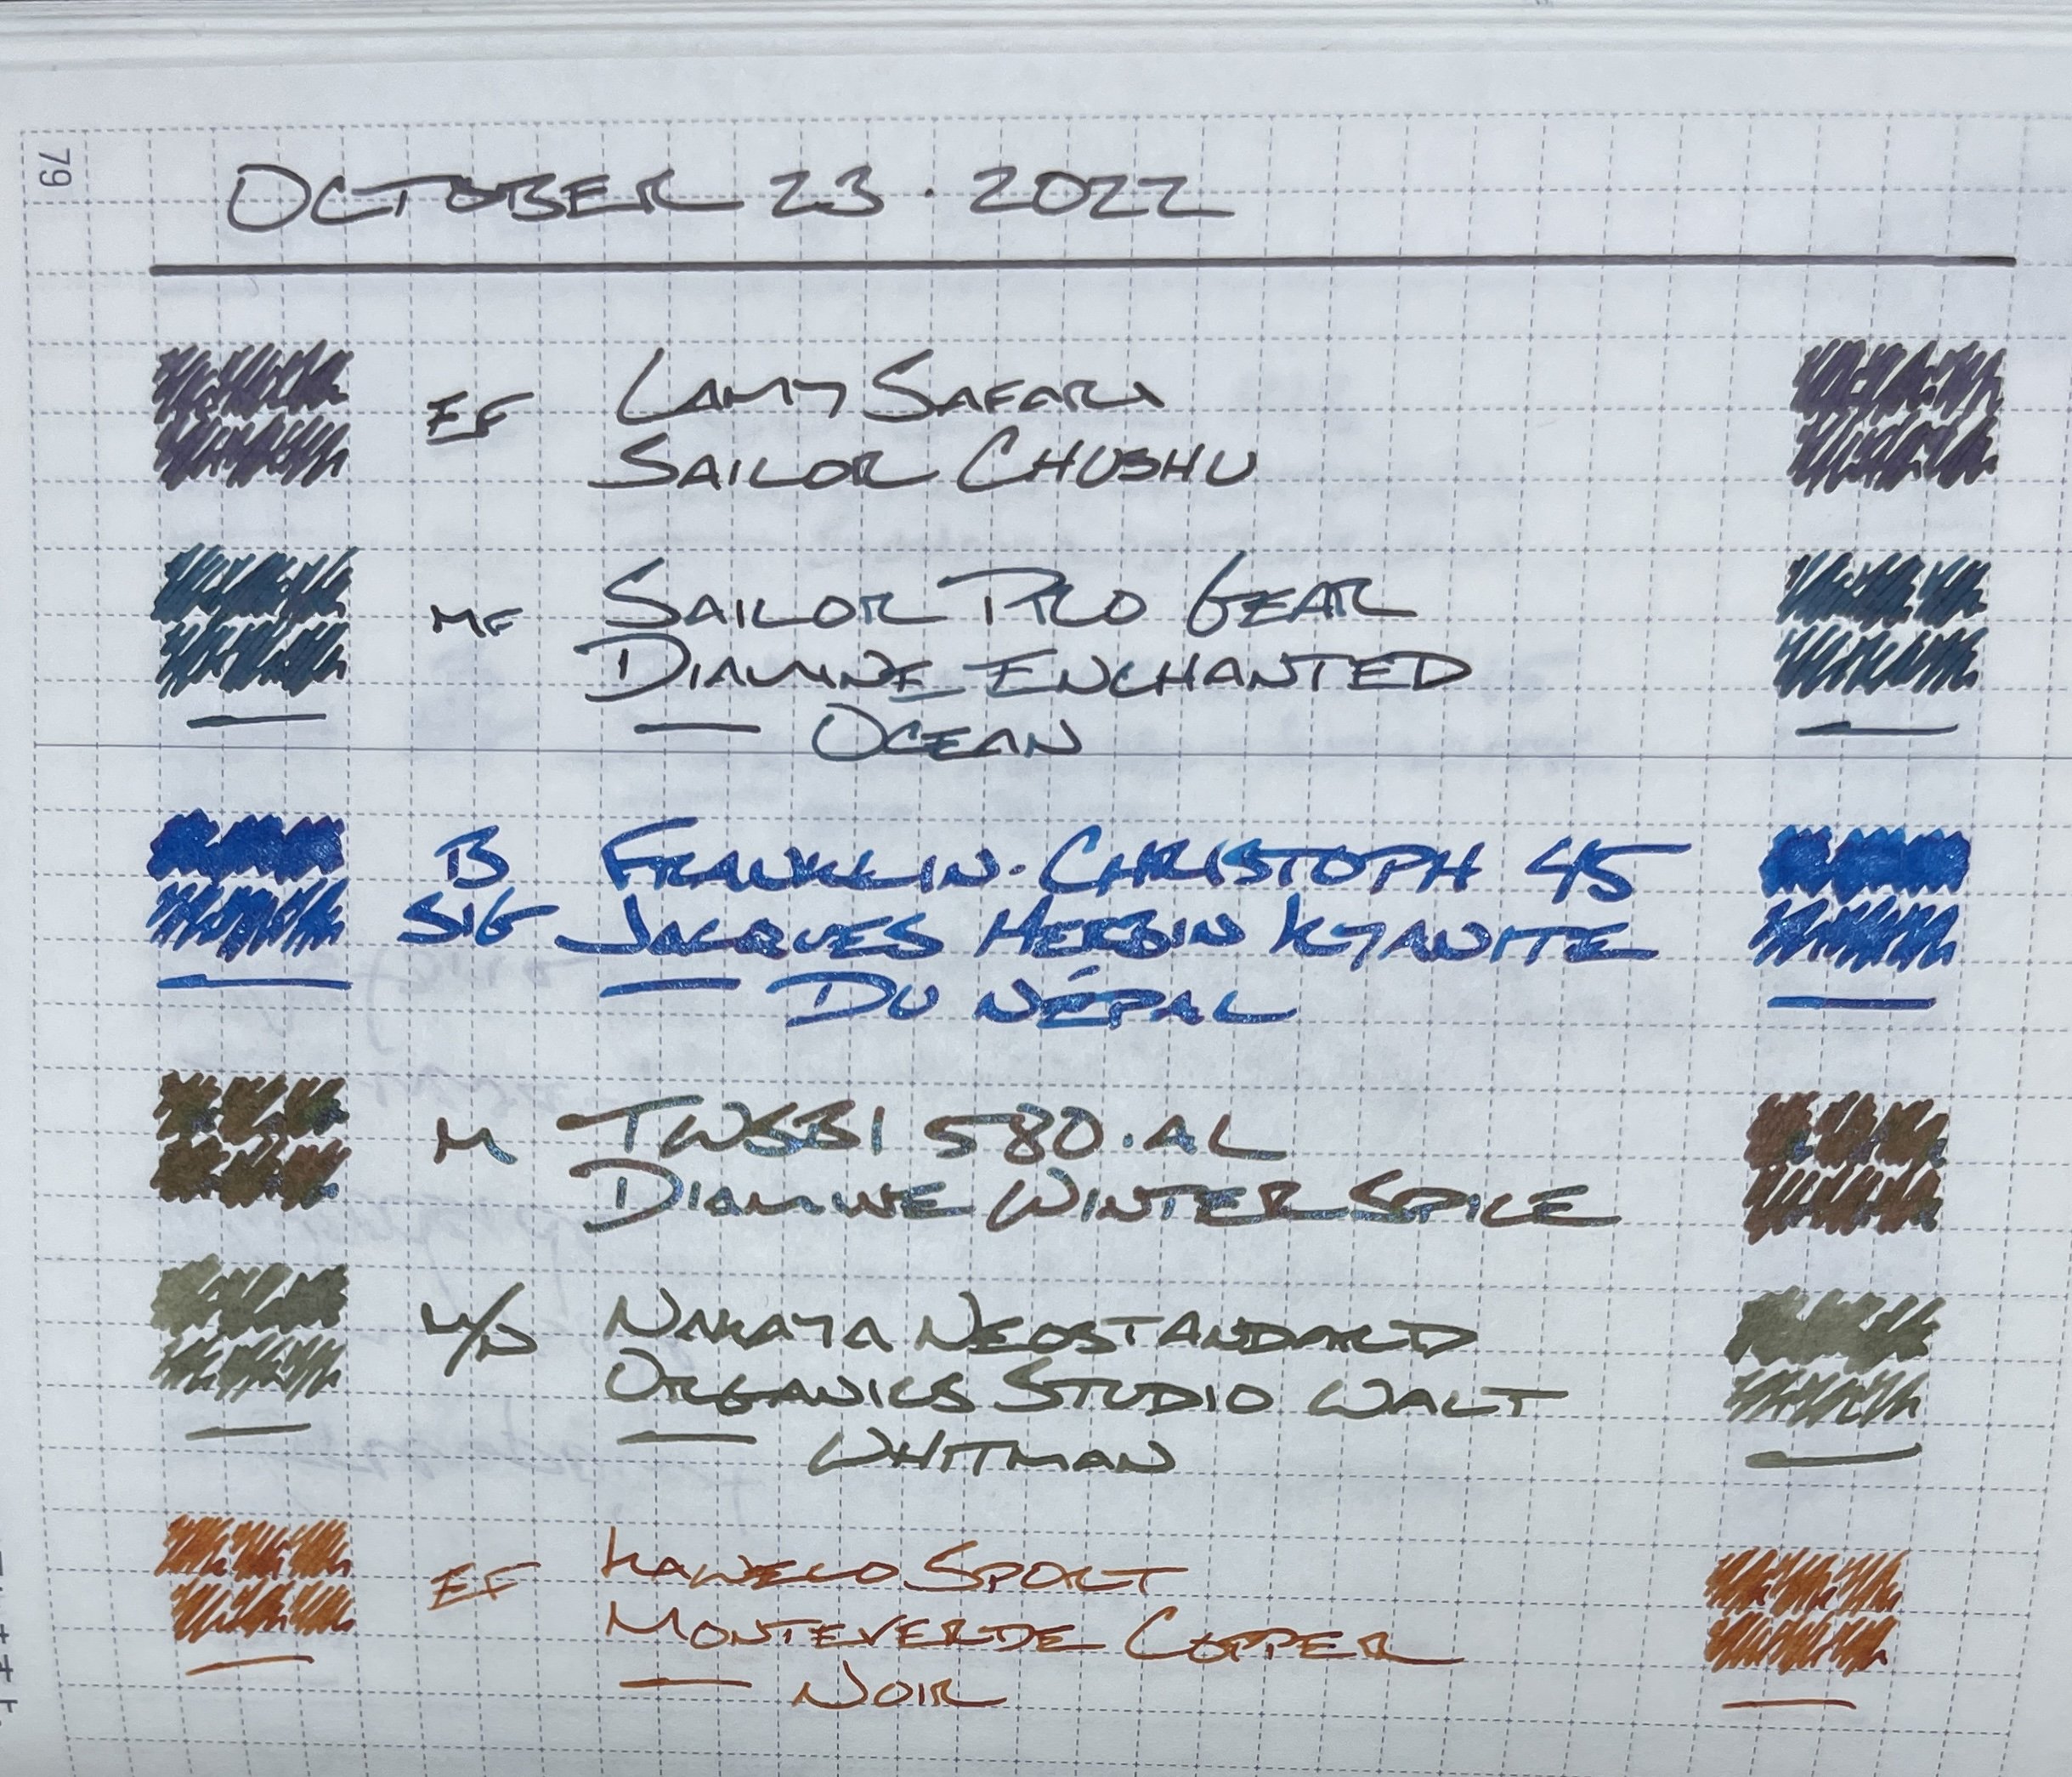 79
OCTOBER 23 · 2022
EF LAMY SAFARI
SAILOR CHUSHU
MF SAILOR PRO GEAR
DIAMINE ENCHANTED
— OCEAN
B FRANKLIN·CHRISTOPH 45
SIG JACQUES HERBIN KYANITE
— DU NÉPAL
M TWSBI 580·AL
DIAMINE WINTER SPICE
NAKAYA NEOSTANDARD
ORGANICS STUDIO WALT
— WHITMAN
EF KAWECO SPORT
MONTEVERDE COPPER
— NOIR